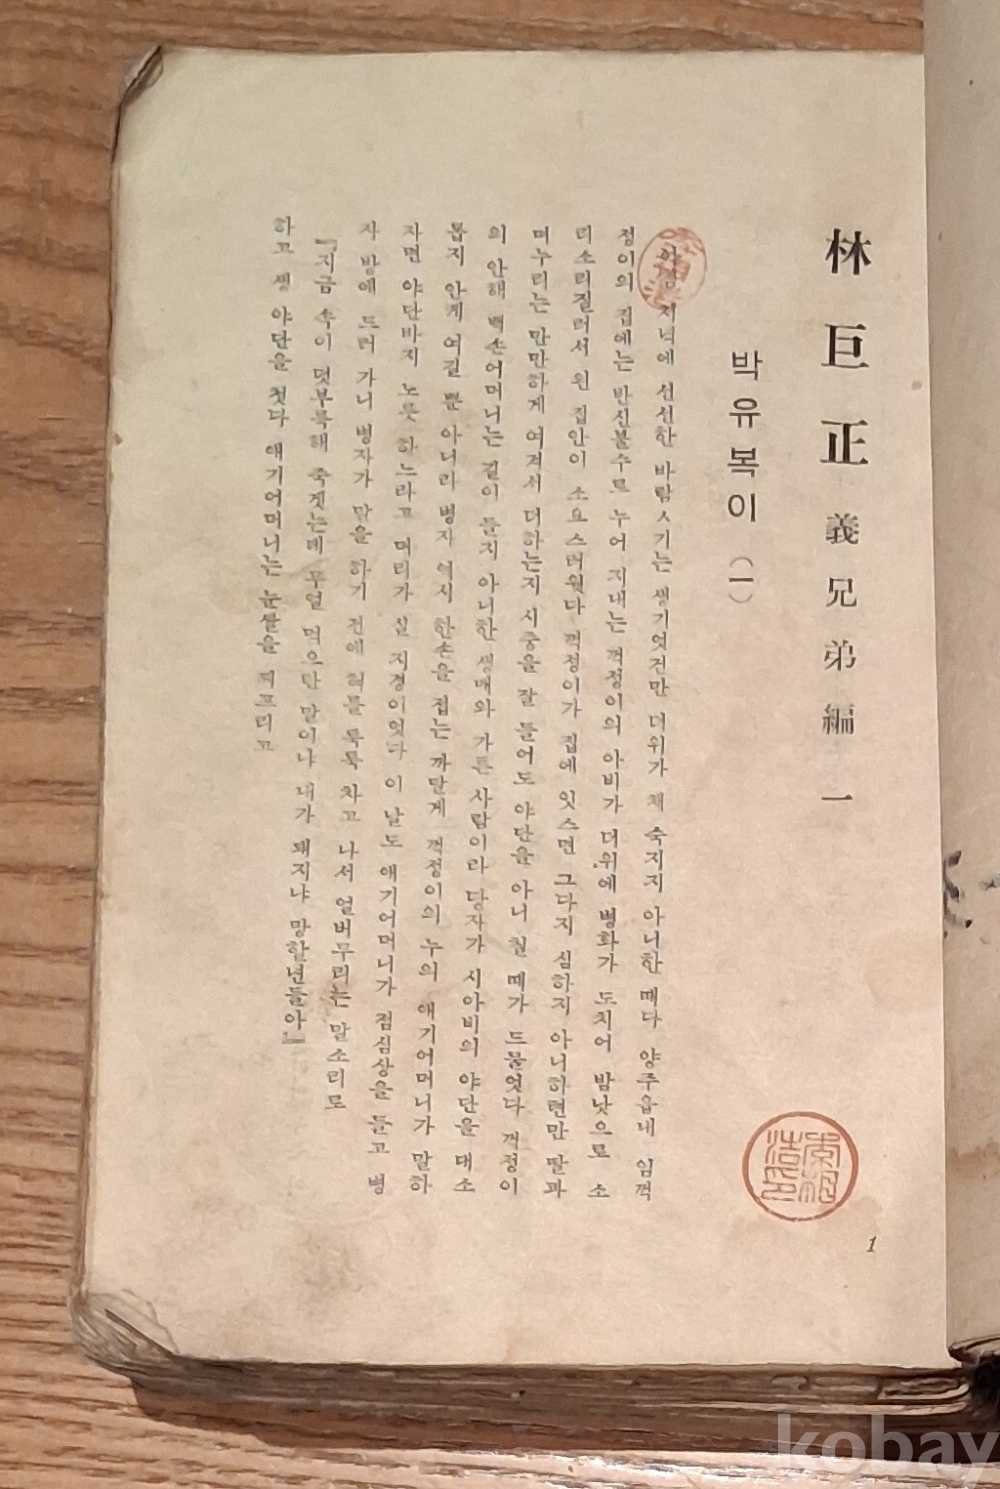 林巨正 義兄弟編 一
박유복이 (一)
저녁에 선선한 바람ㅅ기는 생기엇건만 더위가 채 숙지지 아니한 때다 양주읍내 임꺽
정이의 집에는 반신불수로 누어 지내는 꺽정이의 아비가 더위에 병화가 도치어 밤낫으로 소
리소리질러서 왼 집안이 소요스러웟다 꺽정이가 집에 잇스면 그다지 심하지 아니하련만 딸과
며누리는 만만하게 여겨서 더하는지 시중을 잘 들어도 야단을 아니 칠 때가 드물엇다 꺽정이
의 안해 백손어머니는 길이 들지 아니한 생매와 가튼 사람이라 당자가 시아비의 야단을 대소
롭지 안케 여길 뿐 아니라 병자 역시 한손을 접는 까닭게 꺽정이의 누의 애기어머니가 말하
자면 야단바지 노릇 하느라고 머리가 실 지경이엇다 이 날도 애기어머니가 점심상을 들고 병
자 방에 드러 가니 병자가 말을 하기 전에 혀를 툭툭 차고 나서 얼버무리는 말소리로
『지금 속이 덧부룩해 죽겟는데 무얼 먹으란 말이냐 내가 돼지냐 망할년들아』
하고 생 야단을 첫다 애기어머니는 눈쌀을 찌프리고
1
kobay